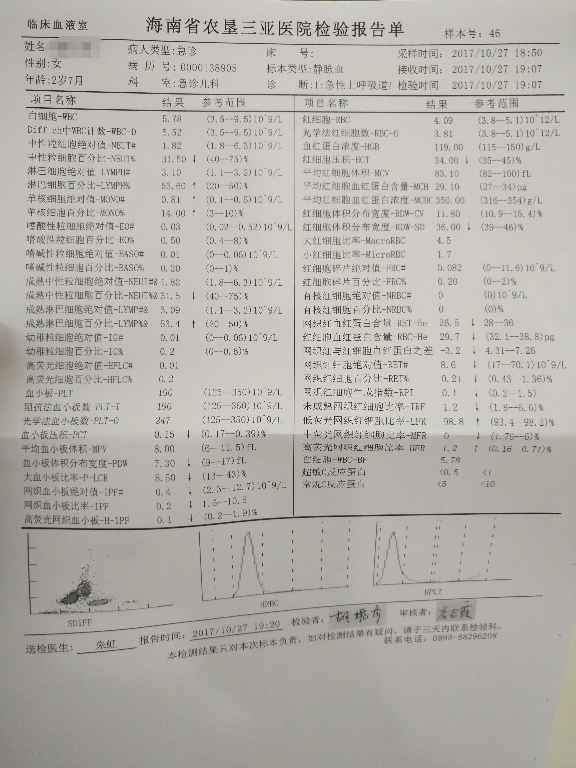 临床血液室
海南省农垦三亚医院检验报告单
样本号: 46
姓名:
病人类型:急诊
床 号:
采样时间: 2017/10/27 18:50
性别:女
病 历 号:0000138905
标本类型:静脉血
接收时间: 2017/10/27 19:07
年龄:2岁7月
科 室:急诊儿科
诊 断:1:急性上呼吸道
检验时间 2017/10/27 19:07
项目名称 结果 参考范围
白细胞-WBC 5.78 (3.5--9.5)10^9/L
Diff中WBC计数-WBC-D 5.52 (3.5--9.5)10^9/L
中性粒细胞绝对值-NEUT# 1.82 (1.8--6.3)10^9/L
中性粒细胞百分比-NEUT% 31.50 ↓ (40--75)%
淋巴细胞绝对值-LYMPH# 3.10 (1.1--3.2)10^9/L
淋巴细胞百分比-LYMPH% 53.60 ↑ (20--50)%
单核细胞绝对值-MONO# 0.81 ↑ (0.1--0.6)10^9/L
单核细胞百分比-MONO% 14.00 ↑ (3--10)%
嗜酸性粒细胞绝对值-EO# 0.03 (0.02--0.52)10^9/L
嗜酸性粒细胞百分比-EO% 0.50 (0.4--8)%
嗜碱性粒细胞绝对值-BASO# 0.01 (0--0.06)10^9/L
嗜碱性粒细胞百分比-BASO% 0.20 (0--1)%
成熟中性粒细胞绝对值-NEUT#& 1.82 (1.8--6.3)10^9/L
成熟中性粒细胞百分比-NEUT%& 31.5 ↓ (40--75)%
成熟淋巴细胞绝对值-LYMP#& 3.09 (1.1--3.2)10^9/L
成熟淋巴细胞百分比-LYMP%& 53.4 ↑ (20--50)%
幼稚粒细胞绝对值-IG# 0.01
幼稚粒细胞百分比-IG% 0.2
高荧光淋巴细胞绝对值-HFLC# 0.01
高荧光淋巴细胞百分比-HFLC% 0.2
血小板-PLT 196 (125--350)10^9/L
阻抗法血小板数-PLT-I 196 (125--350)10^9/L
光学法血小板数-PLT-O 247 (125--350)10^9/L
血小板压积-PCT 0.15 ↓ (0.17--0.39)%
平均血小板体积-MPV 8.00
血小板体积分布宽度-PDW 7.30 ↓ (9--17)fL
大血小板比率-P-LCR 8.50 ↓ (13--43)%
网织血小板绝对值-IPF# 0.4 ↓
网织血小板比率-IPF 0.2 ↓
高荧光网织血小板-H-IPF 0.1 ↓ (0.2--1.9)%
项目名称 结果 参考范围
红细胞-RBC 4.09 (3.8--5.1)10^12/L
光学法红细胞数-RBC-O 3.81 (3.8--5.1)10^12/L
血红蛋白浓度-HGB 119.00 (115--150)g/L
红细胞压积-HCT 34.00 ↓ (35--45)%
平均红细胞体积-MCV 83.10 (82--100)fL
平均红细胞血红蛋白含量-MCH 29.10 (27--34)pg
平均红细胞血红蛋白浓度-MCHC 350.00 (316--354)g/L
红细胞体积分布宽度-RDW-CV 11.80 (10.9--15.4)%
红细胞体积分布宽度-RDW-SD 36.00 ↓ (39--46)%
大红细胞比率-MacroRBC 4.5
小红细胞比率-MicroRBC 1.7
红细胞碎片绝对值-FRC# 0.082
红细胞碎片百分率-FRC% 0.20 (0--2)%
有核红细胞绝对值-NRBC# 0 (0)10^9/L
有核红细胞百分比-NRBC% 0 (0)%
网织红细胞血红蛋白含量-RET-He 25.5 ↓ 28--36
红细胞血红蛋白含量-RBC-He 29.7 ↓ (32.1--38.8)pg
网织红与红细胞血红蛋白之差 -3.2 ↓ 4.31--7.26
网织红细胞绝对值-RET# 8.6 ↓ (17--70.1)10^9/L
网织红细胞百分比-RET% 0.21 ↓ (0.43--1.36)%
网织红细胞生成指数-RPI 0.1 ↓ (0.2--1.5)
未成熟网织红细胞比率-IRF 1.2 ↓ (1.6--6.6)%
低荧光网织红细胞比率-LFR 98.8 ↑ (93.4--98.2)%
中荧光网织红细胞比率-MFR 0 ↓
高荧光网织红细胞比率-HFR 1.2 ↑ (0.16--0.71)%
白细胞-WBC-BF 5.78
超敏C反应蛋白 <0.5 <1
常规C反应蛋白 <5 <10
SDIFF
RBC
PLT
送检医生:
报告时间: 2017/10/27 19:20
检验者:
审核者:
本检测结果只对本次标本负责, 如对检测结果有疑问, 请于三天内联系检验科。
联系电话: 0898-88296208